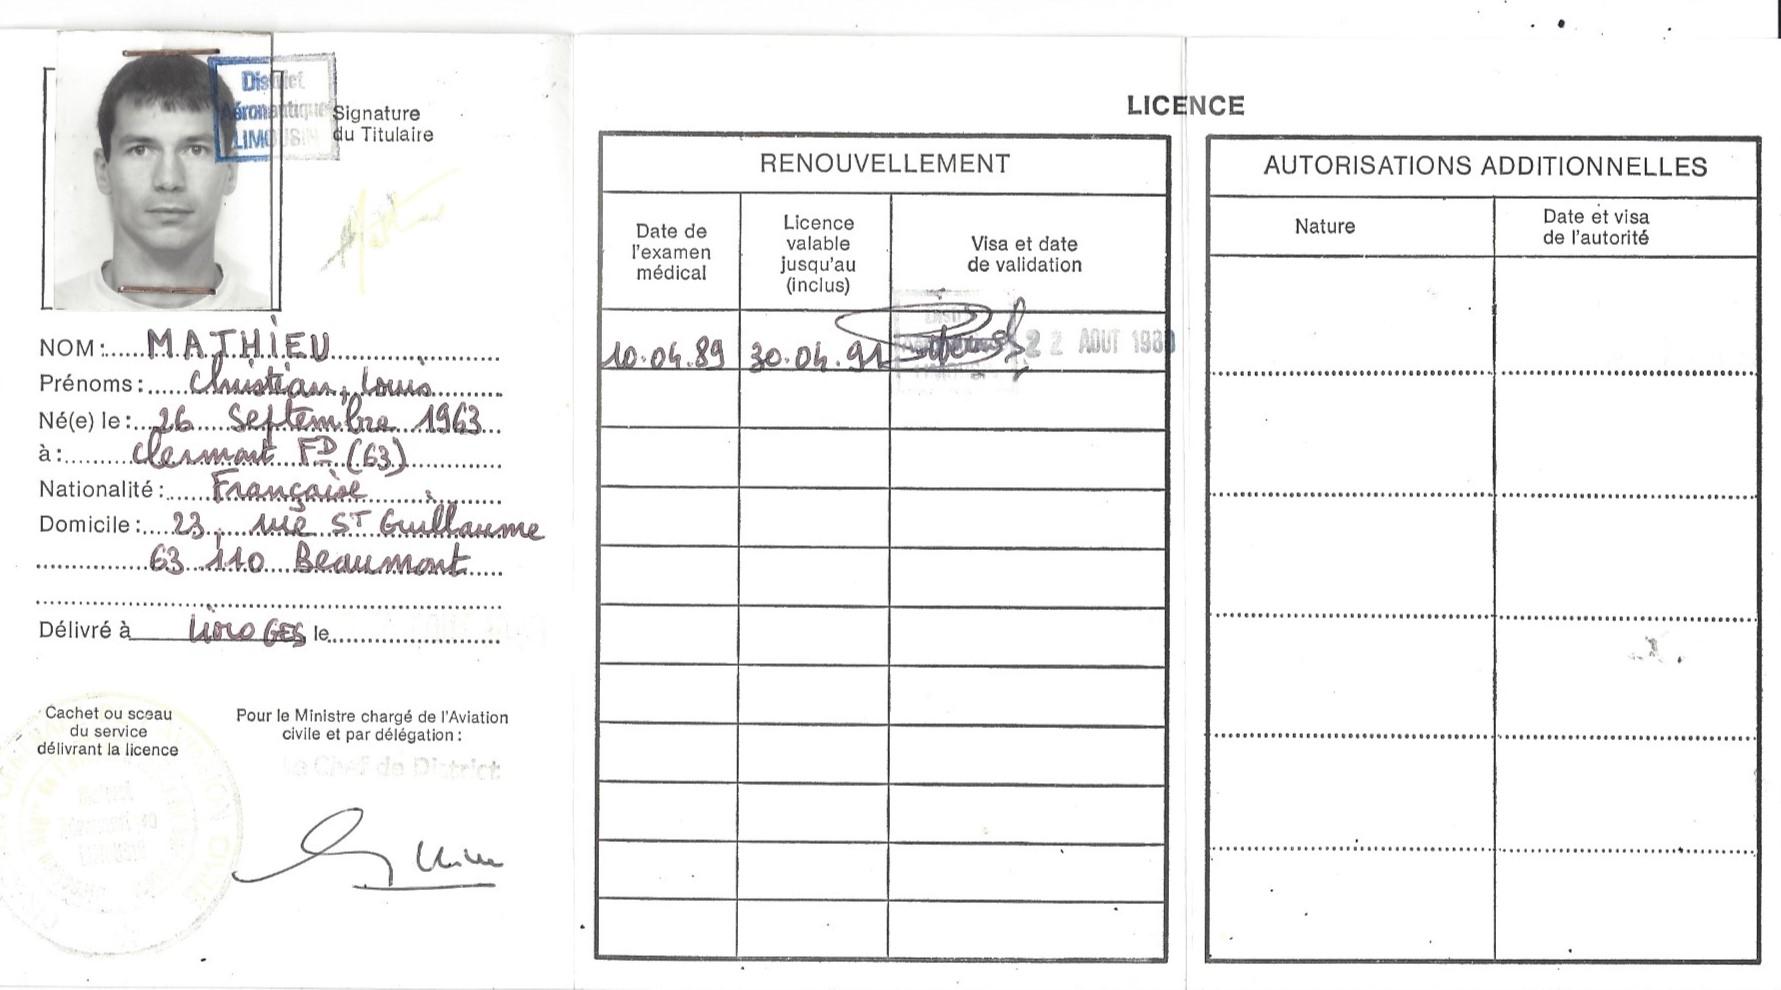 District
Aéronautique
LIMOUSIN
Signature
du Titulaire
NOM : MATHIEU
Prénoms : Christian, Louis
Né(e) le : 26 Septembre 1963
à : Clermont FD (63)
Nationalité : Française
Domicile : 23, rue ST Guillaume
63 110 Beaumont
Délivré à LIMOGES le
Cachet ou sceau
du service
délivrant la licence
Pour le Ministre chargé de l'Aviation
civile et par délégation :
Le Chef de District
LICENCE
RENOUVELLEMENT
Date de
l'examen
médical
Licence
valable
jusqu'au
(inclus)
Visa et date
de validation
10.04.89
30.04.91
22 AOUT 198
AUTORISATIONS ADDITIONNELLES
Nature
Date et visa
de l'autorité